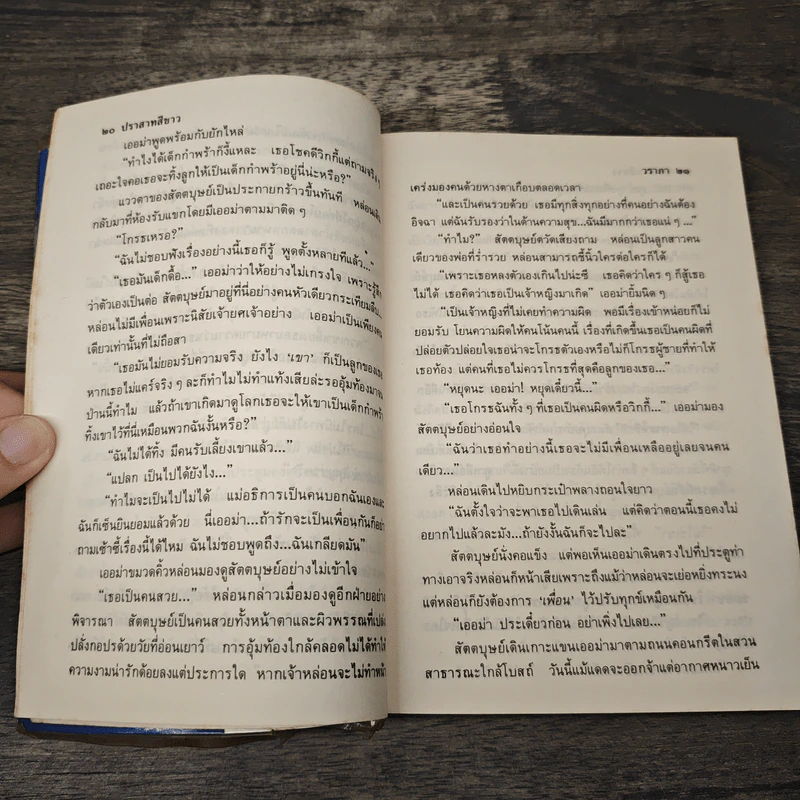 ๒๐ ปราสาทสีขาว
เออม่าพูดพร้อมกับยักไหล่
“ทำไงได้เด็กกำพร้าก็งี้แหละ เธอโชคดีวิกกี้แต่ถามจริง ๆ
เถอะใจคอเธอจะทิ้งลูกให้เป็นเด็กกำพร้าอยู่นี่น่ะหรือ?”
แววตาของสัตตบุษย์เป็นประกายกร้าวขึ้นทันที หล่อนเดิน
กลับมาที่ห้องรับแขกโดยมีเออม่าตามมาติด ๆ
“โกรธเหรอ?”
“ฉันไม่ชอบฟังเรื่องอย่างนี้เธอก็รู้ พูดตั้งหลายทีแล้ว...”
“เธอมันเด็กดื้อ...” เออม่าว่าให้อย่างไม่เกรงใจ เพราะรู้สึก
ว่าตัวเองเป็นต่อ สัตตบุษย์มาอยู่ที่นี่อย่างคนหัวเดียวกระเทียมลีบ
หล่อนไม่มีเพื่อนเพราะนิสัยเจ้ายศเจ้าอย่าง เออม่าเป็นเพียงคน
เดียวเท่านั้นที่ไม่ถือสา
“เธอมันไม่ยอมรับความจริง ยังไง ‘เขา’ ก็เป็นลูกของเธอ
หากเธอไม่แคร์จริง ๆ ละก็ทำไมไม่ทำแท้งเสียล่ะรออุ้มท้องมาจน
ป่านนี้ทำไม แล้วถ้าเขาเกิดมาดูโลกเธอจะให้เขาเป็นเด็กกำพร้า
ทิ้งเขาไว้ที่นี่เหมือนพวกฉันงั้นหรือ?”
“ฉันไม่ได้ทิ้ง มีคนรับเลี้ยงเขาแล้ว...”
“แปลก เป็นไปได้ยังไง...”
“ทำไมจะเป็นไปไม่ได้ แม่อธิการเป็นคนบอกฉันเองและ
ฉันก็เซ็นยินยอมแล้วด้วย นี่เออม่า...ถ้ารักจะเป็นเพื่อนกันก็อย่า
ถามเซ้าซี้เรื่องนี้ได้ไหม ฉันไม่ชอบพูดถึง...ฉันเกลียดมัน”
เออม่าขมวดคิ้วหล่อนมองดูสัตตบุษย์อย่างไม่เข้าใจ
“เธอเป็นคนสวย...” หล่อนกล่าวเมื่อมองดูอีกฝ่ายอย่าง
พิจารณา สัตตบุษย์เป็นคนสวยทั้งหน้าตาและผิวพรรณที่เปล่ง
ปลั่งกอปรด้วยวัยที่อ่อนเยาว์ การอุ้มท้องใกล้คลอดไม่ได้ทำให้
ความงามน่ารักด้อยลงแต่ประการใด หากเจ้าหล่อนจะไม่ทำหน้า
วราภา ๒๑
เคร่งมองคนด้วยหางตาเกือบตลอดเวลา
“และเป็นคนรวยด้วย เธอมีทุกสิ่งทุกอย่างที่คนอย่างฉันต้อง
อิจฉา แต่ฉันรับรองว่าในด้านความสุข...ฉันมีมากกว่าเธอแน่ ๆ ...”
“ทำไม?” สัตตบุษย์ตวัดเสียงถาม หล่อนเป็นลูกสาวคน
เดียวของพ่อที่ร่ำรวย หล่อนสามารถชี้นิ้วใครต่อใครก็ได้
“เพราะเธอหลงตัวเองเกินไปน่ะซี เธอคิดว่าใคร ๆ ก็สู้เธอ
ไม่ได้ เธอคิดว่าเธอเป็นเจ้าหญิงมาเกิด” เออม่ายิ้มนิด ๆ
“เป็นเจ้าหญิงที่ไม่เคยทำความผิด พอมีเรื่องเข้าหน่อยก็ไม่
ยอมรับ โยนความผิดให้คนโน้นคนนี้ เรื่องที่เกิดขึ้นเธอเป็นคนผิดที่
ปล่อยตัวปล่อยใจเธอน่าจะโกรธตัวเองหรือไม่ก็โกรธผู้ชายที่ทำให้
เธอท้อง แต่คนที่เธอไม่ควรโกรธที่สุดคือลูกของเธอ...”
“หยุดนะ เออม่า! หยุดเดี๋ยวนี้...”
“เธอโกรธฉันทั้ง ๆ ที่เธอเป็นคนผิดหรือวิกกี้...” เออม่ามอง
สัตตบุษย์อย่างอ่อนใจ
“ฉันว่าเธอทำอย่างนี้เธอจะไม่มีเพื่อนเหลืออยู่เลยจนคน
เดียว...”
หล่อนเดินไปหยิบกระเป๋าพลางถอนใจยาว
“ฉันตั้งใจว่าจะพาเธอไปเดินเล่น แต่คิดว่าตอนนี้เธอคงไม่
อยากไปแล้วละมัง...ถ้ายังงั้นฉันก็จะไปละ”
สัตตบุษย์นั่งคอแข็ง แต่พอเห็นเออม่าเดินตรงไปที่ประตูทำ
ทางเอาจริงหล่อนก็หน้าเสียเพราะถึงแม้ว่าหล่อนจะเย่อหยิ่งทระนง
แต่หล่อนก็ยังต้องการ ‘เพื่อน’ ไว้ปรับทุกข์เหมือนกัน
“เออม่า ประเดี๋ยวก่อน อย่าเพิ่งไปเลย...”
สัตตบุษย์เดินเกาะแขนเออม่ามาตามถนนคอนกรีตในสวน
สาธารณะใกล้โบสถ์ วันนี้แม้แดดจะออกจ้าแต่อากาศหนาวเย็น